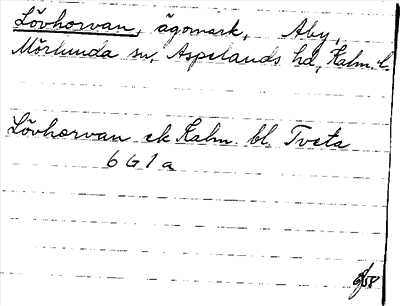 Lövhorvan, ägomark, Åby,
Mörlunda sn, Aspelands hd, Kalm. l.
Lövhorvan ek Kalm. bl. Tveta
6 G 1 a